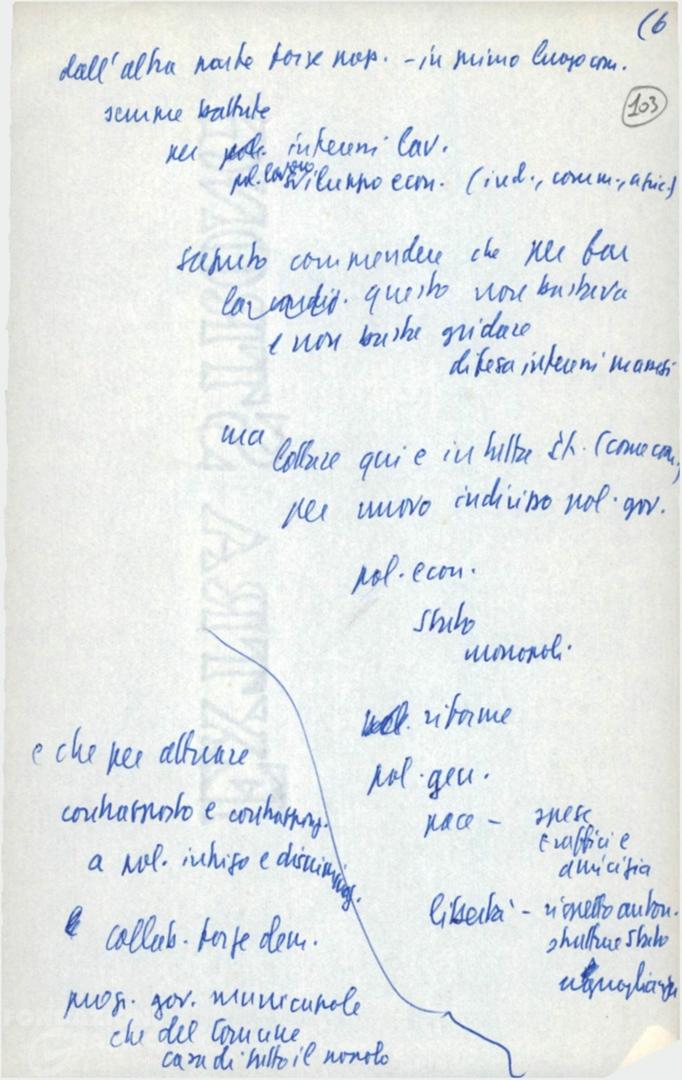 (6
103
dall'altra parte forze pop. - in primo luogo com.
sempre battute
per pol. interessi lav.
pol. lavoro sviluppo econ. (ind., comm., artic.)
saputo comprendere che per far
questo non bastava
e non basta gridare
difesa interessi
ma
lottare qui e in tutta It. (come com.)
per nuovo indirizzo pol. gov.
pol. econ.
Stato
monopoli
riforme
pol. gen.
pace - spese
traffici e
amicizia
libertà - rispetto auton.
strutture Stato
uguaglianza
e che per attuare
contrapposto e contrappong.
a pol. intrigo e discrimin.
e collab. forze dem.
progr. gov. municipale
che del Comune
casa di tutto il popolo